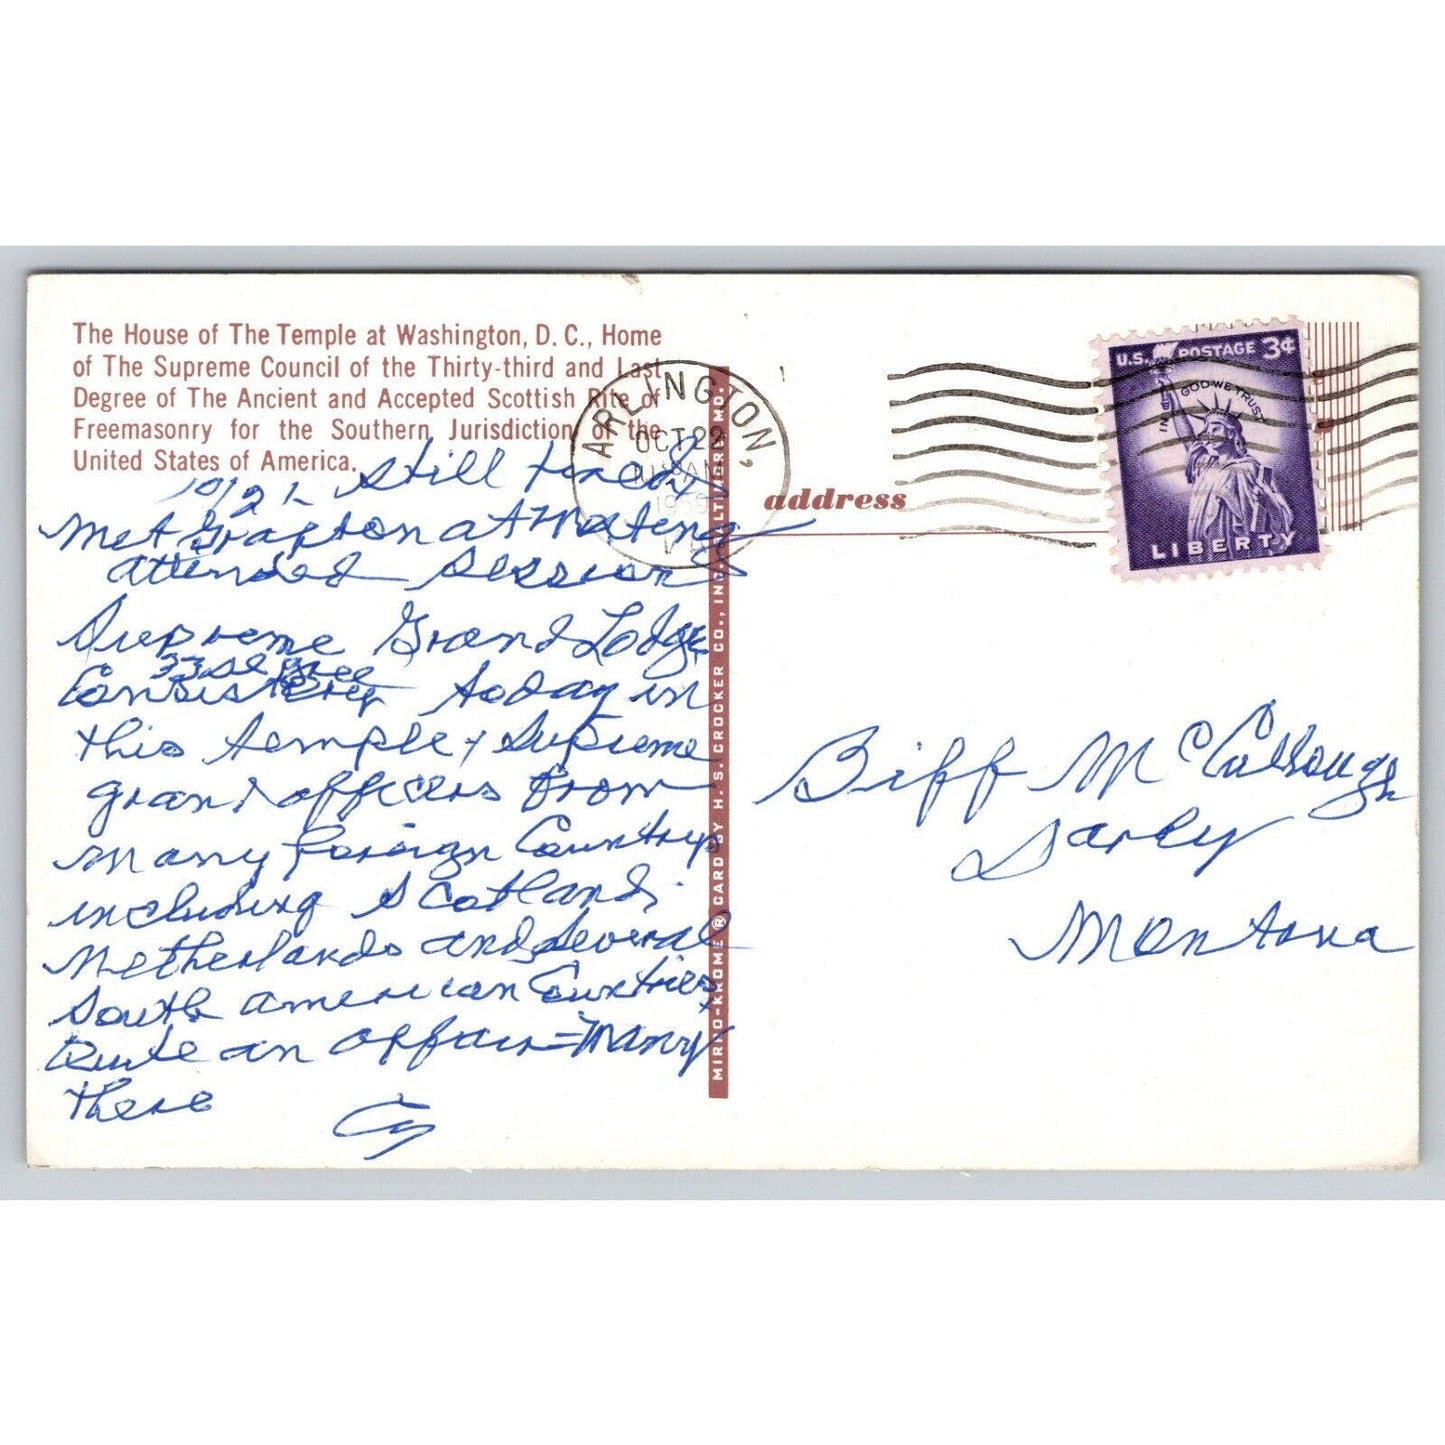 The House of The Temple at Washington, D. C., Home
of The Supreme Council of the Thirty-third and Last
Degree of The Ancient and Accepted Scottish Rite of
Freemasonry for the Southern Jurisdiction of the
United States of America.
10/21 Still tired
Met Grafton at
attended sessions
Supreme Grand Lodge
33rd Degree
Consistory today in
this temple & Supreme
grand officers from
many foreign Countrys
including Scotland,
Netherlands and several
South american Countries
Quite an affair = Many
there
Cy
MIRRO-KROME ® CARD BY H. S. CROCKER CO., INC. BALTIMORE MD.
ARLINGTON,
OCT 22
AM
VA
address
U.S. POSTAGE 3¢
IN GOD WE TRUST
LIBERTY
Biff McCullough
Darby
Montana